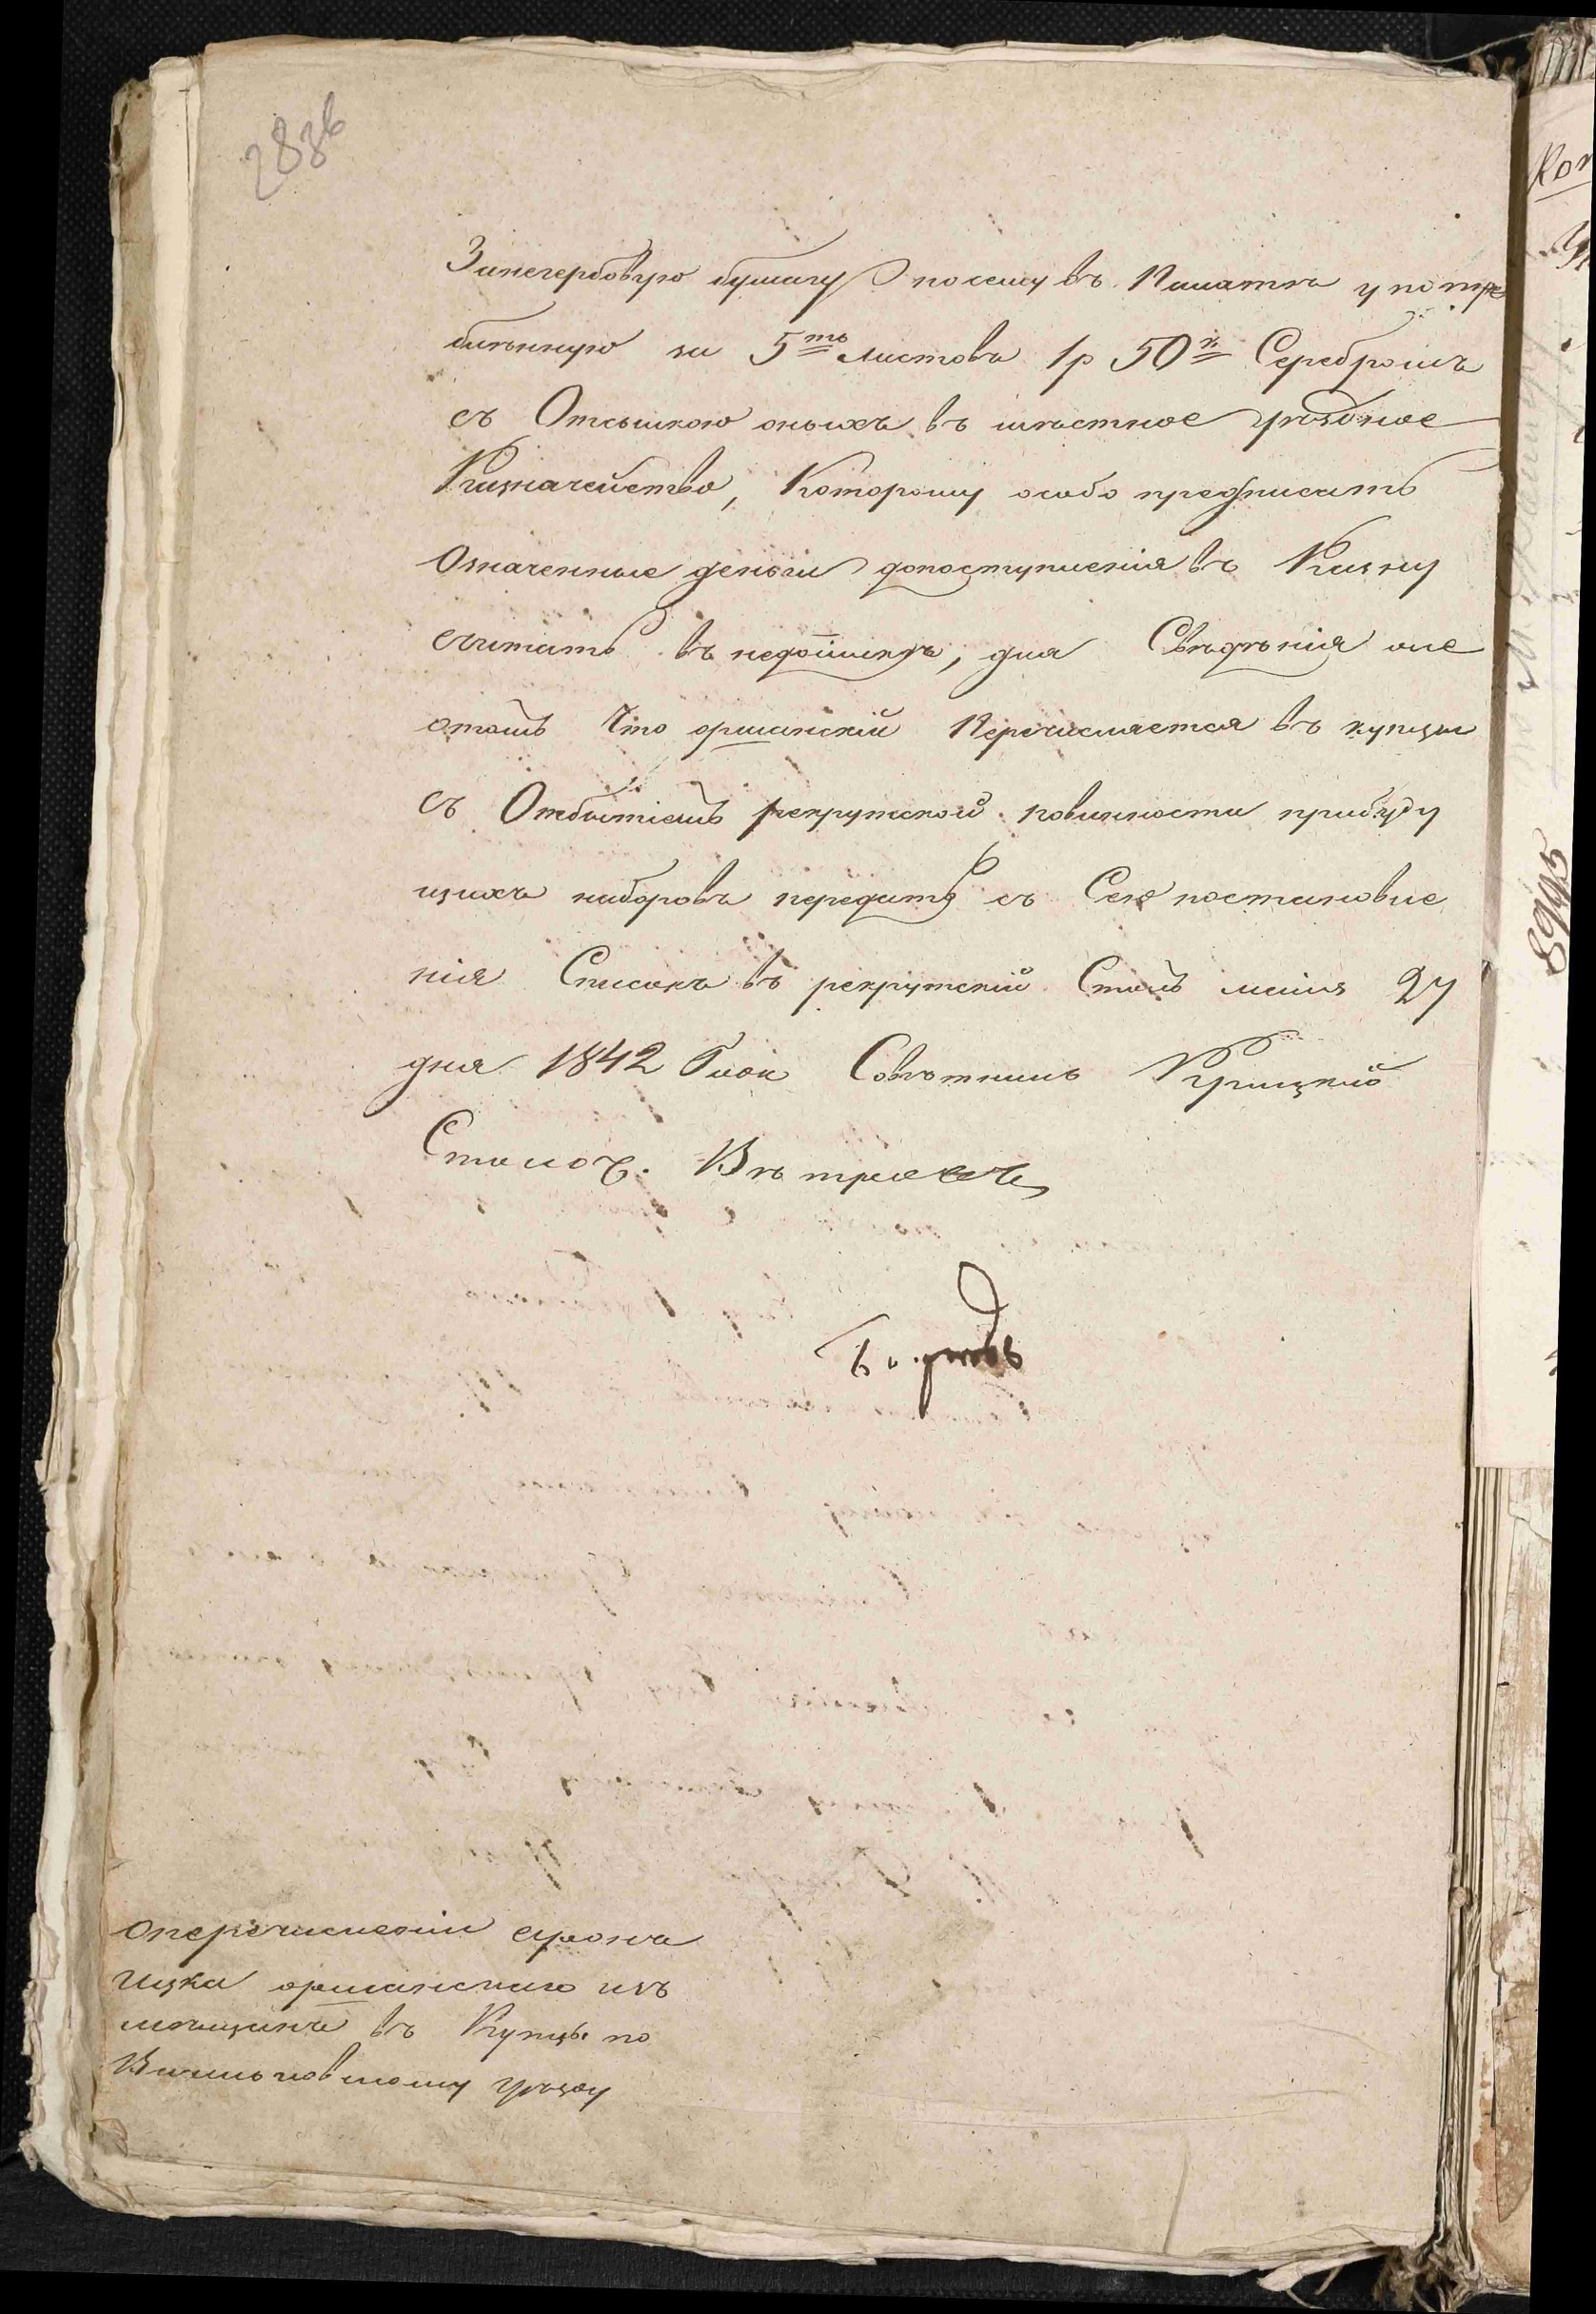 283б
Занегербовую бумагу посему въ Палатѣ употре
бленную за 5ть листовъ 1р 50к Серебромъ
съ Отсылкою оныхъ въ мѣстное уѣздное
Казначейство, Которому особо предписать
Означенные деньги допоступленія въ Казну
считать въ недоимкѣ, для Свѣдѣнія же
отомъ Что оршанскій Перечисляется въ купцы
съ Отбытіемъ рекрутской повинности прибуду
щихъ наборовъ передать съ Сего постановле
нія Списокъ въ рекрутскій Столъ маія 27
дня 1842 Года Совѣтникъ
Столон.
Оперечисленіи
Ицка оршанскаго изъ
мѣщанъ въ Купцы по
Васильковскому уѣзду
8995